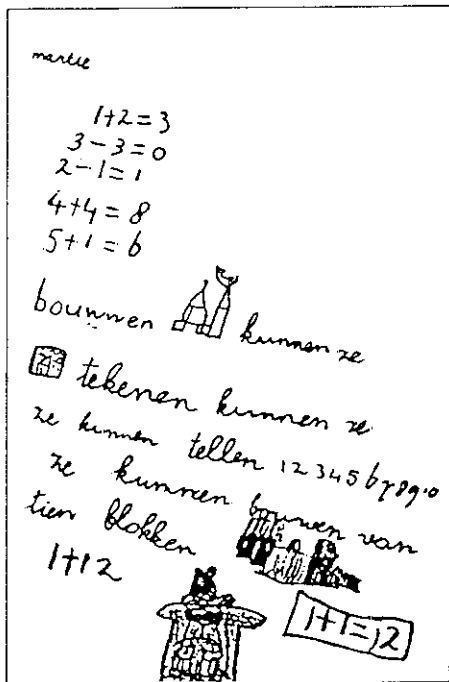 martie
1+2=3
3-3=0
2-1=1
4+4=8
5+1=6
bouwwen kunnen ze
tekenen kunnen ze
ze kunnen tellen 12345678910
ze kunnen bouwen van
tien blokken
1+12
1+1=12